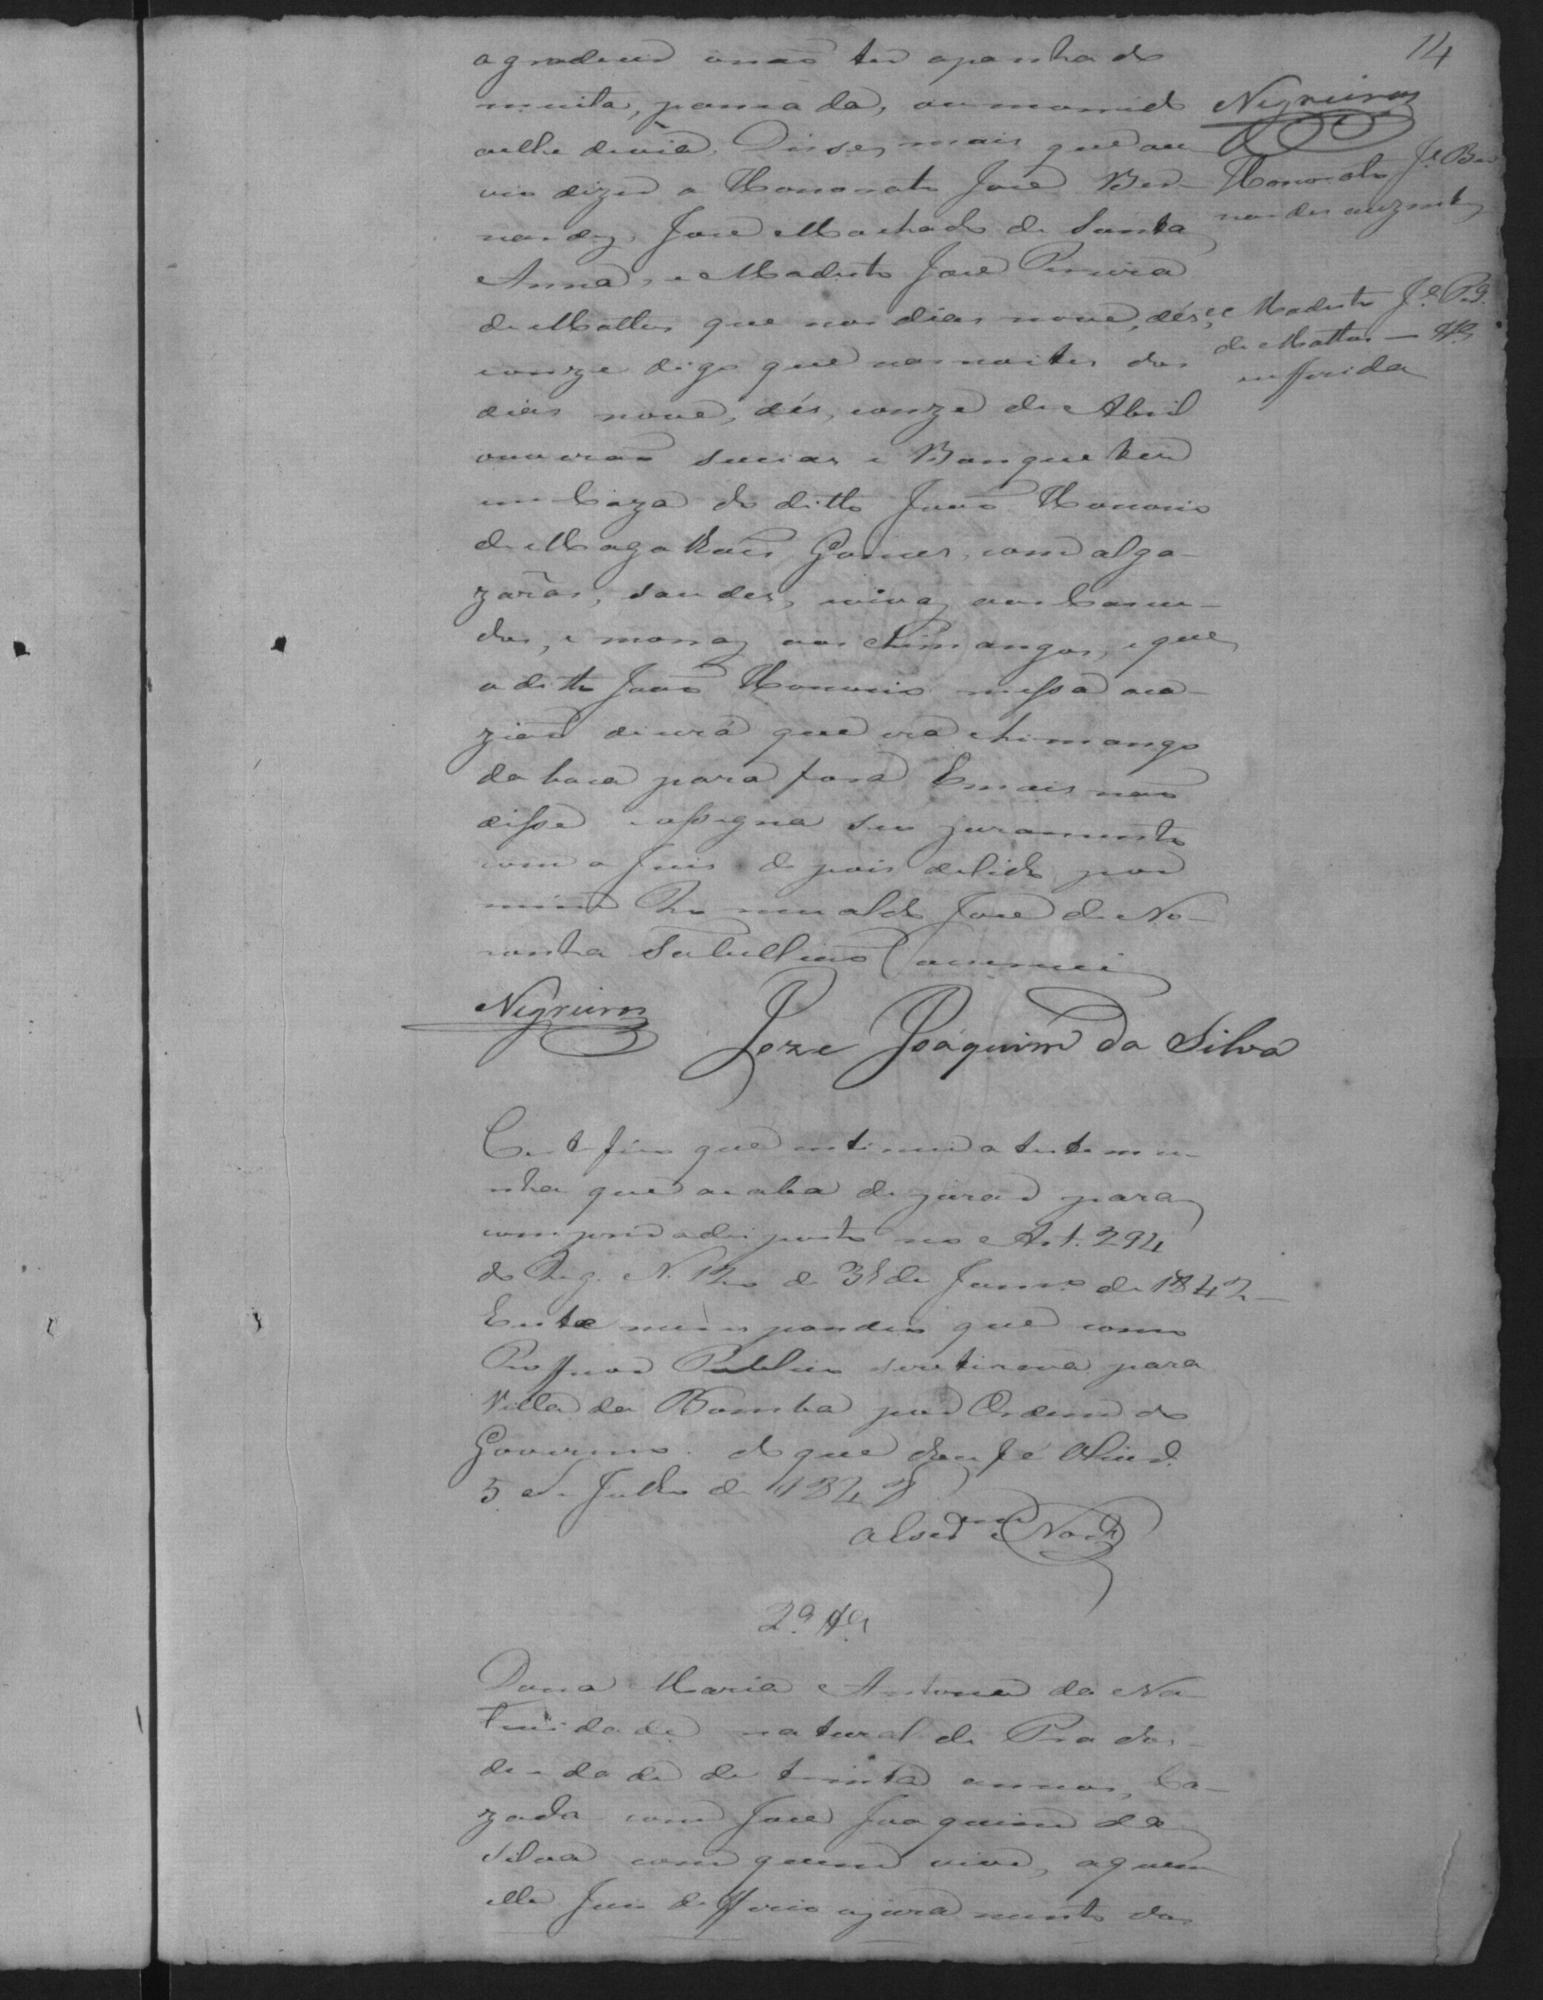 14
agradecer o não ter apanhado
muita pancada, ou morrido
Disse mais que ou
vio dizer a Honorato José Ber
nardes, José Machado de Santa
Anna, e Modesto José Pereira
de Mattos que nos dias nove, dés, e
onze digo que nas noites dos
dias nove, dés, e onze de Abril
ouverão sucias e Banquetes
em Caza do ditto João Honorio
de Magalhaes Gomes, com alga
zarras, saudes, vivas aos Cascu-
dos, e morras aos Chimangos, e que
o ditto João Honorio nessa oca-
zião dicera que era chimango
da boca para fora E mais não
disse e assigna seu juramento
com o Juis depois de lido por
mim Romualdo José de No-
ronha Tabellião Oescrevi
Negreiros José Joaquim da Silva
Negreiros
Honorato Je. Ber
nardes auzente
e Modesto Je. Pra.
de Mattos — Ta.
refferida
Certifico que intimei a testemu-
nha que acaba de jurar para
comprir o disposto no Art. 294
do Reg. N. 120 de 31 de Janro. de 1842
E esta me respondeo que como
Proffessor Publico se retirava para
Villa da Pomba por Ordem do
Governo. do que dou fé
5 de Julho de 184
2ª Ta.
Dona Maria Antonia da Na
tividade natural de Prados
de idade de trinta annos, Ca-
zada com José Joaquim da
Silva com quem vive, aquem
elle Juis defferio o juramento dos